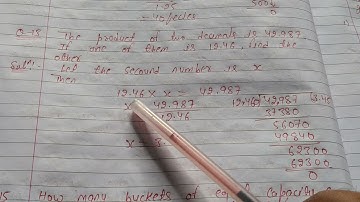 1.25
= 40 pieces
500
0
Q-15 The product of two decimals is 42.987
If one of them is 12.46, find the
other
Sol: Let the second number is x
Then
12.46 × x = 42.987
x 42.987 12.46 42.987
12.46 37380
56070
x = 3. 49840
62300
62300
0
15 How many buckets of equal capacity